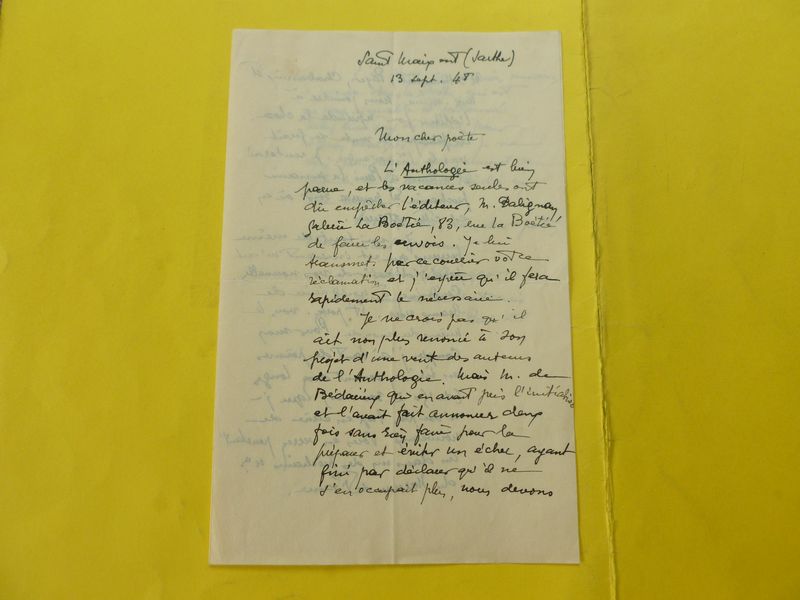 Saint Maixent (Sarthe)
13 sept. 48
Mon cher poète
L'Anthologie est bien
parue, et les vacances seules ont
dû empêcher l'éditeur, M. Balignay,
galerie La Boëtie, 83, rue La Boëtie
de faire les envois. Je lui
transmets par ce courrier votre
réclamation et j'espère qu'il fera
rapidement le nécessaire.
Je ne crois pas qu'il
ait non plus renoncé à son
projet d'une vente des auteurs
de l'Anthologie. Mais M. de
qui en avait pris l'initiative
et l'avait fait annoncer deux
fois sans rien faire pour la
préparer et éviter un échec, ayant
fini par déclarer qu'il ne
s'en occupait plus, nous devons